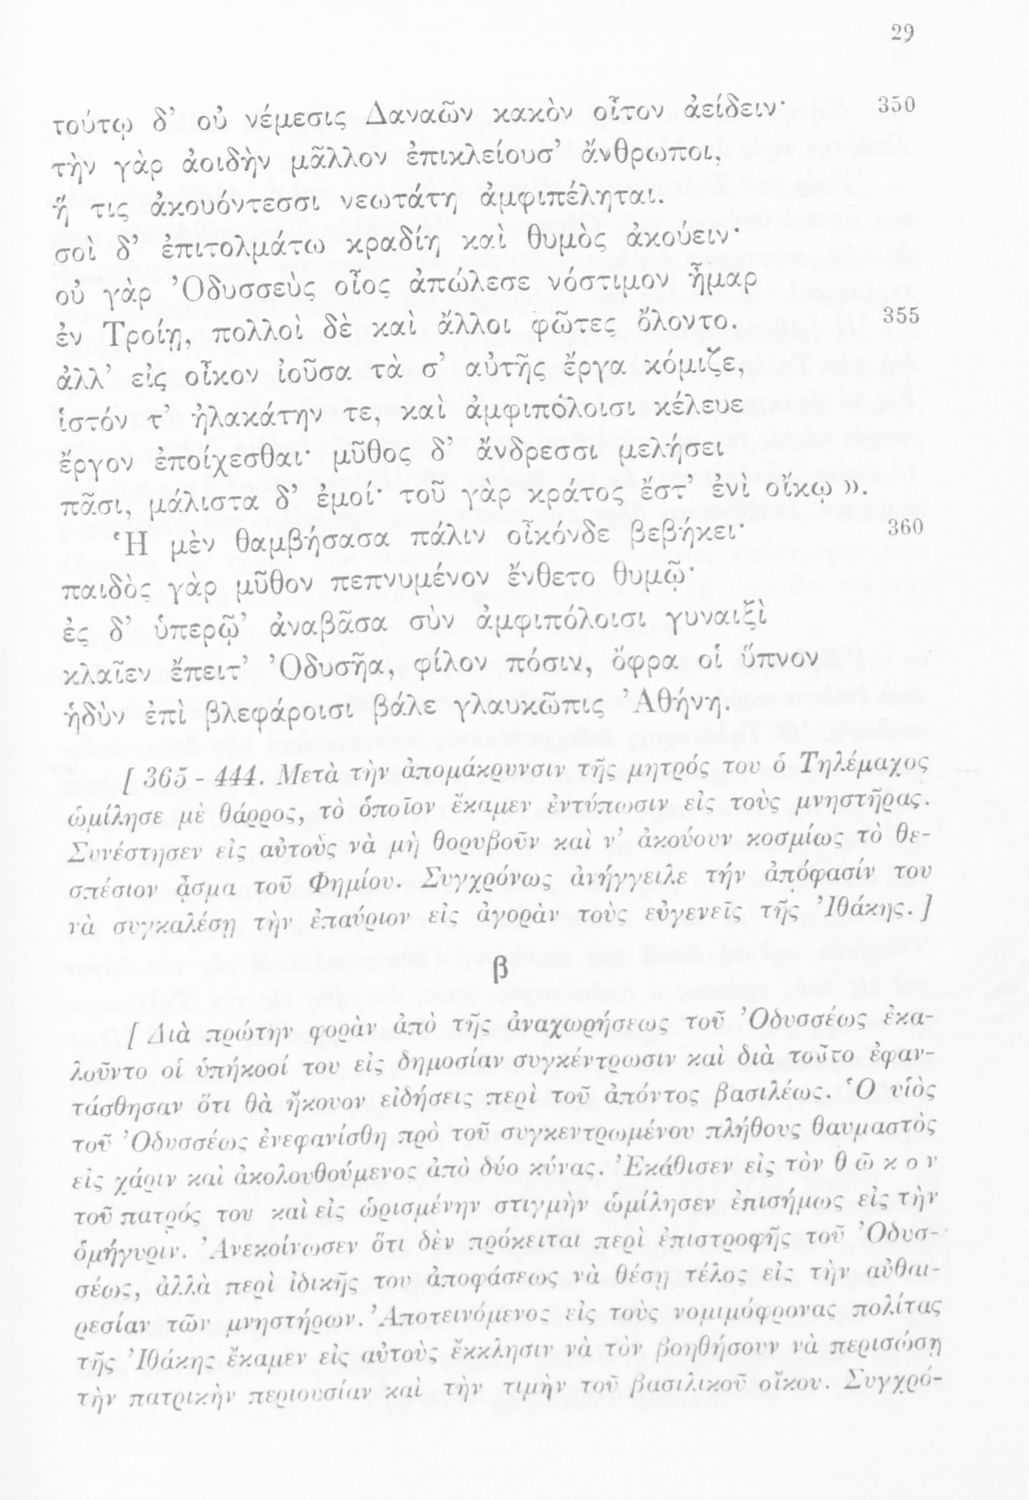 29
τούτῳ δ’ οὐ νέμεσις Δαναῶν κακὸν οἶτον ἀείδειν· 350
τὴν γὰρ ἀοιδὴν μᾶλλον ἐπικλείουσ’ ἄνθρωποι,
ἥ τις ἀκουόντεσσι νεωτάτη ἀμφιπέληται.
σοὶ δ’ ἐπιτολμάτω κραδίη καὶ θυμὸς ἀκούειν·
οὐ γὰρ Ὀδυσσεὺς οἶος ἀπώλεσε νόστιμον ἦμαρ
ἐν Τροίῃ, πολλοὶ δὲ καὶ ἄλλοι φῶτες ὄλοντο. 355
ἀλλ’ εἰς οἶκον ἰοῦσα τὰ σ’ αὐτῆς ἔργα κόμιζε,
ἱστόν τ’ ἠλακάτην τε, καὶ ἀμφιπόλοισι κέλευε
ἔργον ἐποίχεσθαι· μῦθος δ’ ἄνδρεσσι μελήσει
πᾶσι, μάλιστα δ’ ἐμοί· τοῦ γὰρ κράτος ἔστ’ ἐνὶ οἴκῳ ».
Ἡ μὲν θαμβήσασα πάλιν οἶκόνδε βεβήκει· 360
παιδὸς γὰρ μῦθον πεπνυμένον ἔνθετο θυμῷ·
ἐς δ’ ὑπερῷ’ ἀναβᾶσα σὺν ἀμφιπόλοισι γυναιξὶ
κλαῖεν ἔπειτ’ Ὀδυσῆα, φίλον πόσιν, ὄφρα οἱ ὕπνον
ἡδὺν ἐπὶ βλεφάροισι βάλε γλαυκῶπις Ἀθήνη.
[ 365 - 444. Μετὰ τὴν ἀπομάκρυνσιν τῆς μητρός του ὁ Τηλέμαχος
ὡμίλησε μὲ θάρρος, τὸ ὁποῖον ἔκαμεν ἐντύπωσιν εἰς τοὺς μνηστῆρας.
Συνέστησεν εἰς αὐτοὺς νὰ μὴ θορυβοῦν καὶ ν’ ἀκούουν κοσμίως τὸ θε-
σπέσιον ᾆσμα τοῦ Φημίου. Συγχρόνως ἀνήγγειλε τήν ἀπόφασίν του
νὰ συγκαλέσῃ τὴν ἐπαύριον εἰς ἀγορὰν τοὺς εὐγενεῖς τῆς Ἰθάκης. ]
β
[ Διὰ πρώτην φορὰν ἀπὸ τῆς ἀναχωρήσεως τοῦ Ὀδυσσέως ἐκα-
λοῦντο οἱ ὑπήκοοί του εἰς δημοσίαν συγκέντρωσιν καὶ διὰ τοῦτο ἐφαν-
τάσθησαν ὅτι θὰ ἤκουον εἰδήσεις περὶ τοῦ ἀπόντος βασιλέως. Ὁ υἱὸς
τοῦ Ὀδυσσέως ἐνεφανίσθη πρὸ τοῦ συγκεντρωμένου πλήθους θαυμαστὸς
εἰς χάριν καὶ ἀκολουθούμενος ἀπὸ δύο κύνας. Ἐκάθισεν εἰς τὸν θ ῶ κ ο ν
τοῦ πατρός του καὶ εἰς ὡρισμένην στιγμὴν ὡμίλησεν ἐπισήμως εἰς τὴν
ὁμήγυριν. Ἀνεκοίνωσεν ὅτι δὲν πρόκειται περὶ ἐπιστροφῆς τοῦ Ὀδυσ-
σέως, ἀλλὰ περὶ ἰδικῆς του ἀποφάσεως νὰ θέσῃ τέλος εἰς τὴν αὐθαι-
ρεσίαν τῶν μνηστήρων. Ἀποτεινόμενος εἰς τοὺς νομιμόφρονας πολίτας
τῆς Ἰθάκης ἔκαμεν εἰς αὐτοὺς ἔκκλησιν νὰ τὸν βοηθήσουν νὰ περισώσῃ
τὴν πατρικὴν περιουσίαν καὶ τὴν τιμὴν τοῦ βασιλικοῦ οἴκου. Συγχρό-